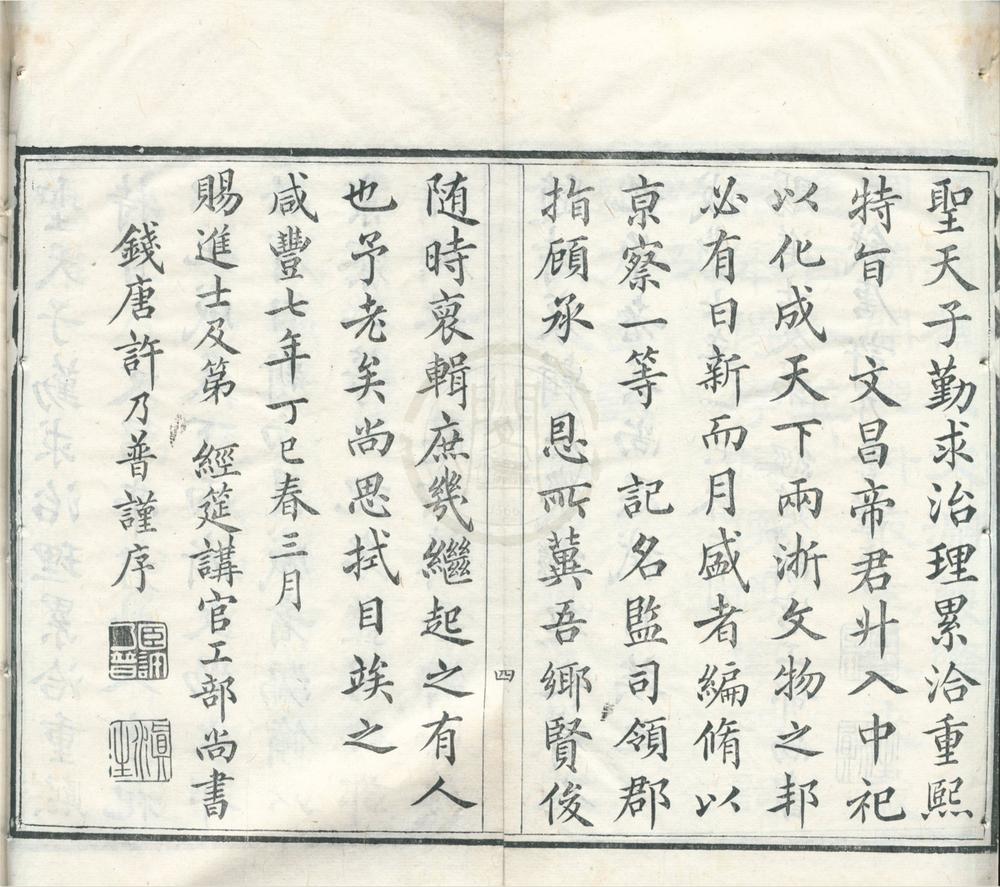 聖天子勤求治理累洽重熙
特旨　文昌帝君升入中祀
以化成天下兩浙文物之邦
必有日新而月盛者編脩以
京察一等　記名監司領郡
指顧承　恩所冀吾鄉賢俊
四
随時裒輯庶幾繼起之有人
也予老矣尚思拭目竢之
咸豐七年丁巳春三月
賜進士及第　經筵講官工部尚書
錢唐許乃普謹序
滇生